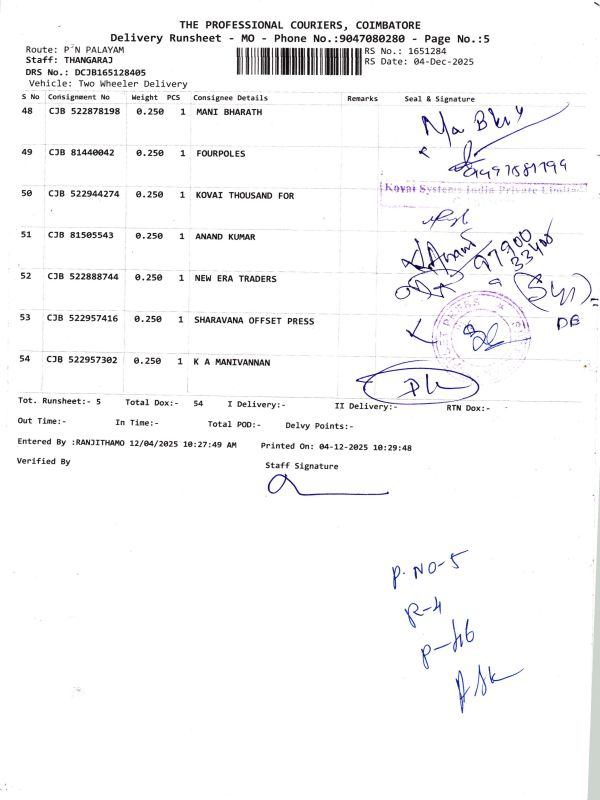 THE PROFESSIONAL COURIERS, COIMBATORE
Delivery Runsheet - MO - Phone No.:9047080280 - Page No.:5
Route: P N PALAYAM RS No.: 1651284
Staff: THANGARAJ RS Date: 04-Dec-2025
DRS No.: DCJB165128405
Vehicle: Two Wheeler Delivery
S No Consignment No Weight PCS Consignee Details Remarks Seal & Signature
48 CJB 522878198 0.250 1 MANI BHARATH
49 CJB 81440042 0.250 1 FOURPOLES
50 CJB 522944274 0.250 1 KOVAI THOUSAND FOR
Kovai Systems India Private Limited
51 CJB 81505543 0.250 1 ANAND KUMAR
Anand 97900
33400
52 CJB 522888744 0.250 1 NEW ERA TRADERS
53 CJB 522957416 0.250 1 SHARAVANA OFFSET PRESS
54 CJB 522957302 0.250 1 K A MANIVANNAN
Tot. Runsheet:- 5 Total Dox:- 54 I Delivery:- II Delivery:- RTN Dox:-
Out Time:- In Time:- Total POD:- Delvy Points:-
Entered By :RANJITHAMO 12/04/2025 10:27:49 AM Printed On: 04-12-2025 10:29:48
Verified By Staff Signature
P.NO-5
R-4
P-46